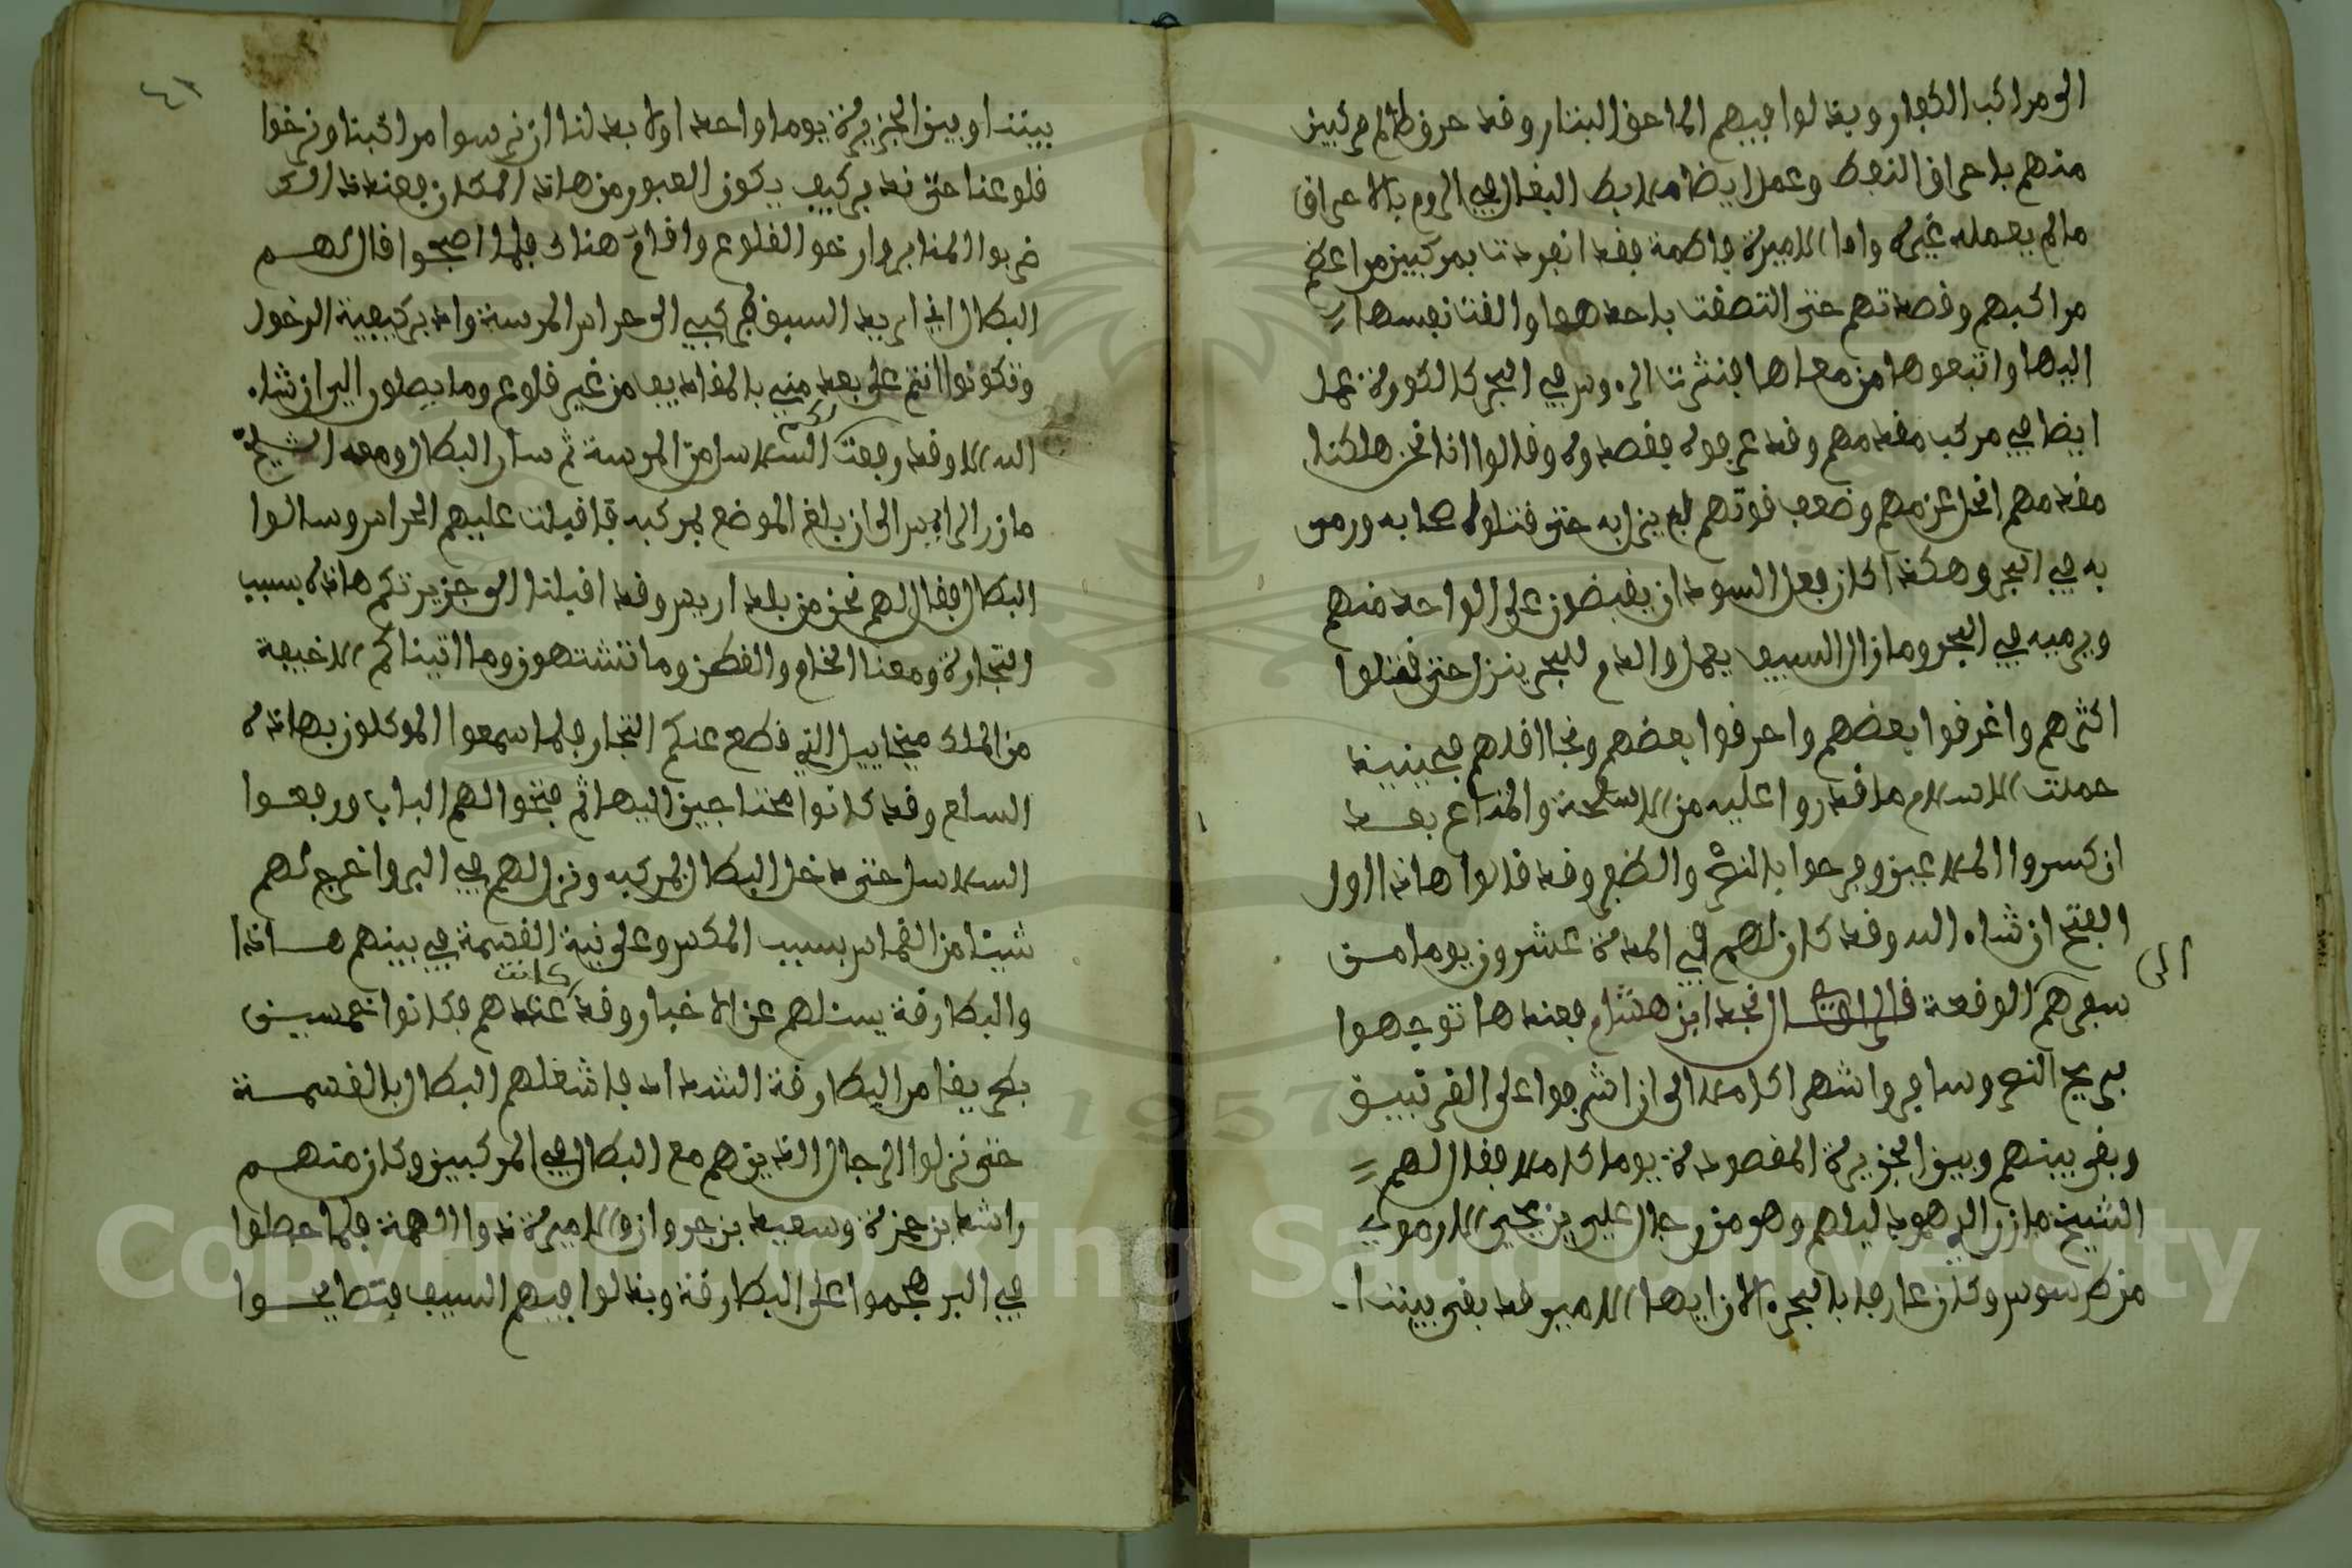 الى مراكب الكفار وبذلوا فيهم الماحق البتار وقد حرقوا لهم مركبين
منهم باحراق النفط وعمل ايضا البطال في الروم بالاحراق
مالم يعمله غيره واما الاميرة فاطمة فقد انفردت بمركبين من اعظم
مراكبهم وقصدتهم حتى التصقت باحدهما والقت نفسها
اليها واتبعوها من معها فنثرت الروس في البحر كالكورة عمد
ايضا في مركب مقدمهم وقد عرفوه فقصدوه وقالوا اذا نحن هلكنا
مقدمهم انحل عزمهم وضعف قوتهم فلم يزل به حتى قتلوا اصحابه ورمى
به في البحر وهكذا كان فعل السودان يقبضون على الواحد منهم
ويرميه في البحر وما زال السيف يعمل والدم للبحر ينزل حتى قتلوا
اكثرهم واغرقوا بعضهم واحرقوا بعضهم ونجا اقلهم فحينيذ
حملت الاسلام ما قدروا عليه من الاسلحة والمتاع بعد
ان كسروا الملاعين وفرحوا بالنصر والظفر وقد قالوا هاذا اول
الفتح ان شاء الله وقد كان لهم في المدة عشرون يوما من
سفرهم الى الوقعة قال الراوي نجد ابن هشام فعندها توجهوا
بريح النصر وسافروا شهرا كاملا الى ان اشرفوا على الفرتبيق
وبقى بينهم وبين الجزيرة المقصودة يوما كاملا فقال لهم
الشيخ مازر الدهو دليلهم وهو من رجال علي بن يحيى الارموي
من طرسوس وكان عارفا بالبحر الان ايها الامير قد بقى بيننا
٤٢
بيننا وبين الجزيرة يوما واحدا ولا بد لنا ان نرسوا مراكبنا ونرخوا
قلوعنا حتى ندبر كيف يكون العبور من هاذا المكان فعند ذالك
ضربوا المنابر وارخوا القلوع واقام هناك فلما اصبحوا قال لهم
البطال اني اريد السبق بمركبي الى حراس المرسة وادبر كيفية الدخول
وتكونوا انتم على بعد مني بالمقاديف من غير قلوع وما يصلون اليه ان شاء
الله الا وقد رفعت لكم السلاسل من المرسة ثم سار البطال ومعه الشيخ
مازر الرايس الى ان بلغ الموضع بمركبه فاقبلت عليهم الحراس وسالوا
البطال فقال لهم نحن من بلد اريس وقد اقبلنا الى جزيرتكم هاذه بسبب
التجارة ومعنا الخام والقطن وما تشتهون وما اتيناكم الا خيفة
من الملك ميخاييل الذي قطع عنكم التجار فلما سمعوا الموكلون بهاذه
السلع وقد كانوا محتاجين اليها ثم فتحوا لهم الباب ورفعوا
السلاسل حتى دخل البطال بمركبه ونزل لهم في البر واخرج لهم
شيئا من القماش بسبب المكس وعلى نية القسمة في بينهم هاذا
والبطارقة يسئلهم عن الاخبار وقد كانت عندهم فكانوا خمسين
بطريقا من البطارقة الشداد فاشغلهم البطال بالقسمة
حتى نزلوا الرجال الذين هم مع البطال في المركبين وكان منهم
راشد بن حمزة وسعيد بن جروان والاميرة ذوا الهمة فلما حصلوا
في البر هجموا على البطارقة وبذلوا فيهم السيف فتصايحوا